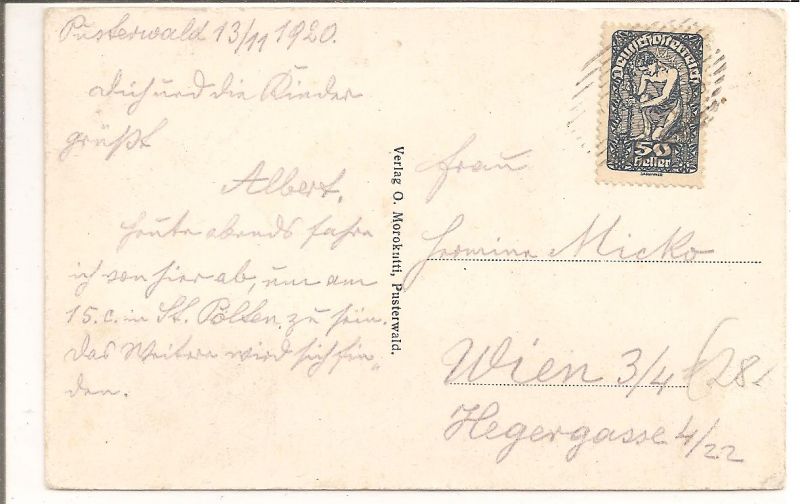 Pusterwald 13/11 1920.
Dich und die Kinder
grüßt
Albert.
Heute abends fahre
ich von hier ab, um am
15. c. in St. Pölten zu sein.
Das Weitere wird sich fin„
den.
Verlag O. Morokutti, Pusterwald.
Deutschösterreich
50
Heller
Frau
Hermine Micko
Wien 3/4 (28
Hegergasse 4/22